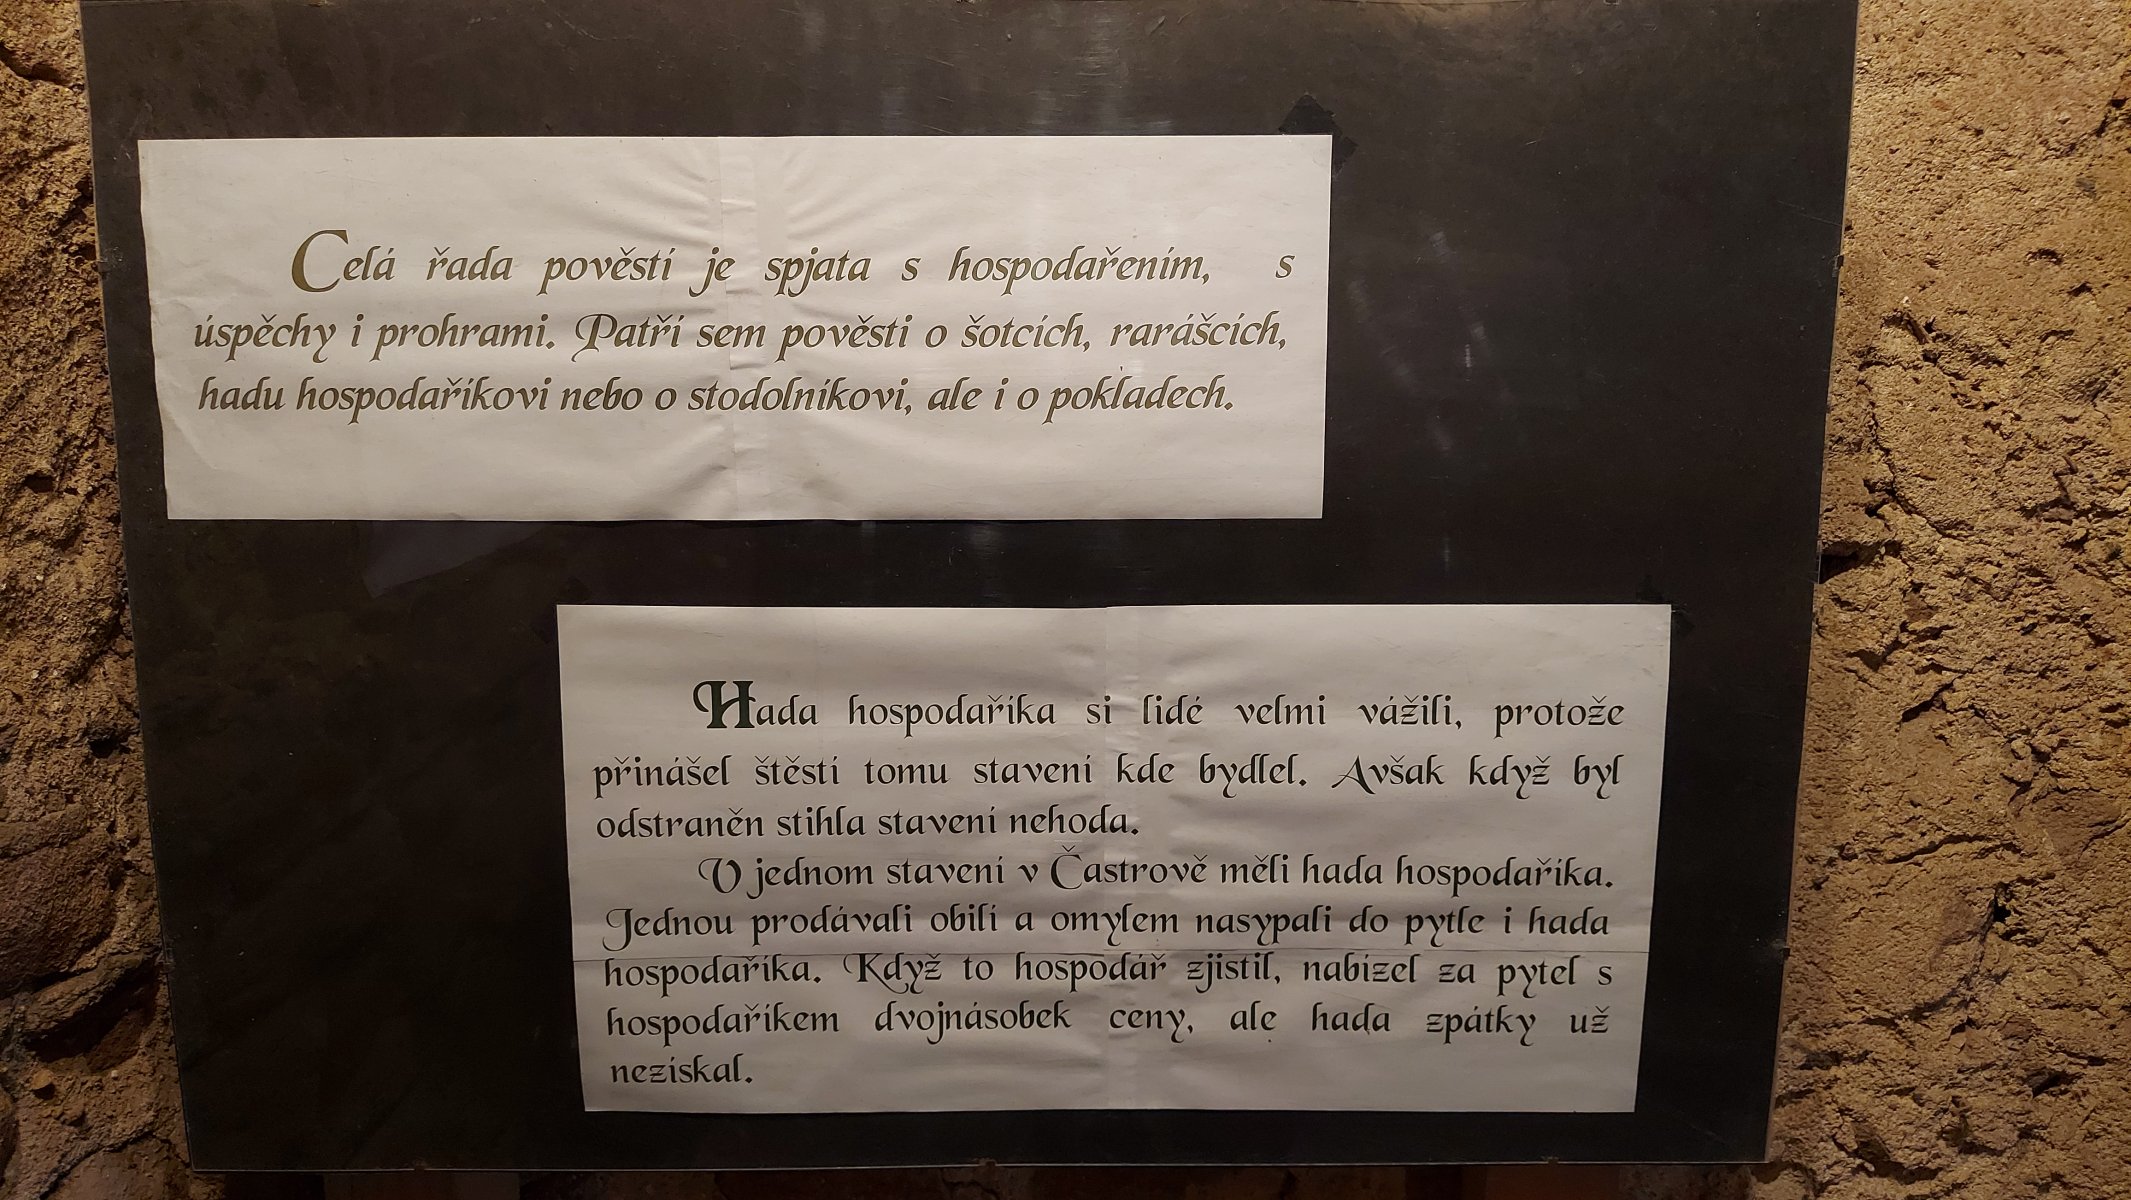 Celá řada pověstí je spjata s hospodařením, s
úspěchy i prohrami. Patří sem pověsti o šotcích, rarášcích,
hadu hospodaříkovi nebo o stodolníkovi, ale i o pokladech.
Hada hospodaříka si lidé velmi vážili, protože
přinášel štěstí tomu stavení kde bydlel. Avšak když byl
odstraněn stihla stavení nehoda.
V jednom stavení v Častrově měli hada hospodaříka.
Jednou prodávali obilí a omylem nasypali do pytle i hada
hospodaříka. Když to hospodář zjistil, nabízel za pytel s
hospodaříkem dvojnásobek ceny, ale hada zpátky už
nezískal.